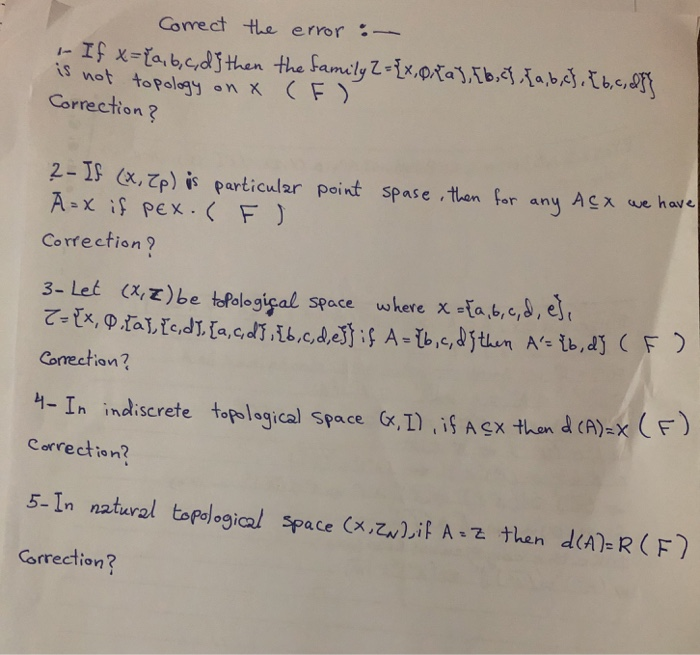 Correct the error :—
1- If X={a,b,c,d} then the family Z={X,φ,{a},{b,c},{a,b,c},{b,c,d}}
is not topology on X ( F )
Correction?
2- If (X,Zp) is particular point spase, then for any A⊆X we have
Ā=X if p∈X. ( F )
Correction?
3- Let (X,Z) be topological space where X={a,b,c,d,e},
Z={X,Φ,{a},{c,d},{a,c,d},{b,c,d,e}} if A={b,c,d} then A'={b,d} ( F )
Correction?
4- In indiscrete topological space (X,I), if A⊆X then d(A)=X ( F )
Correction?
5- In natural topological space (X,ZN), if A=Z then d(A)=R ( F )
Correction?